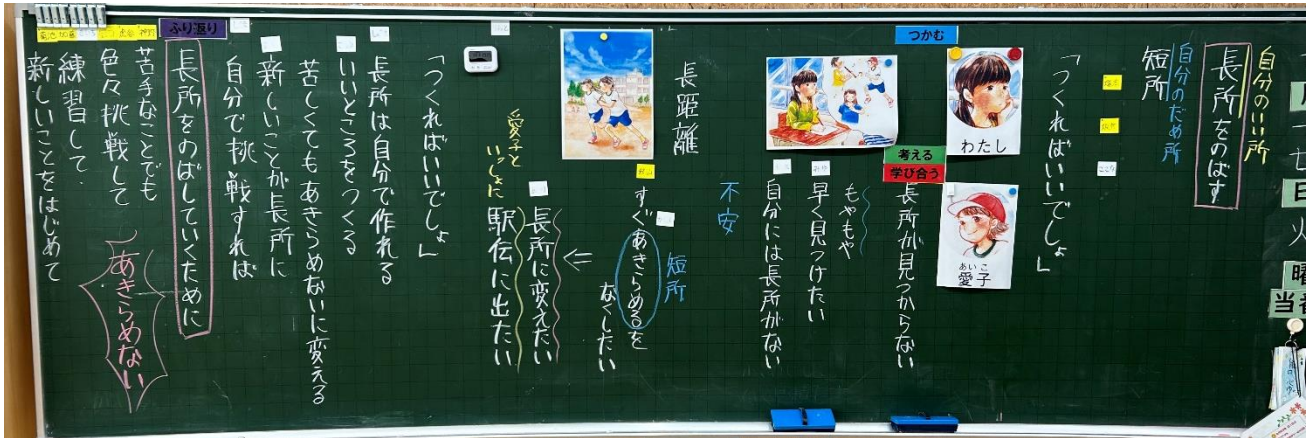 七
日
火
曜
当番
自分のいい所
長所をのばす
自分のだめ所
短所
「つくればいいでしょ」
つかむ
わたし
あいこ
愛子
考える
学び合う
長所が見つからない
もやもや
早く見つけたい
自分には長所がない
不安
長距離
短所
すぐあきらめるを
なくしたい
⇐
長所に変えたい
駅伝に出たい
愛子と
いっしょに
「つくればいいでしょ」
長所は自分で作れる
いいところをつくる
苦しくてもあきらめないに変える
新しいことが長所に
自分で挑戦すれば
ふり返り
長所をのばしていくために
苦手なことでも
色々挑戦して
あきらめない
練習して.
新しいことをはじめて